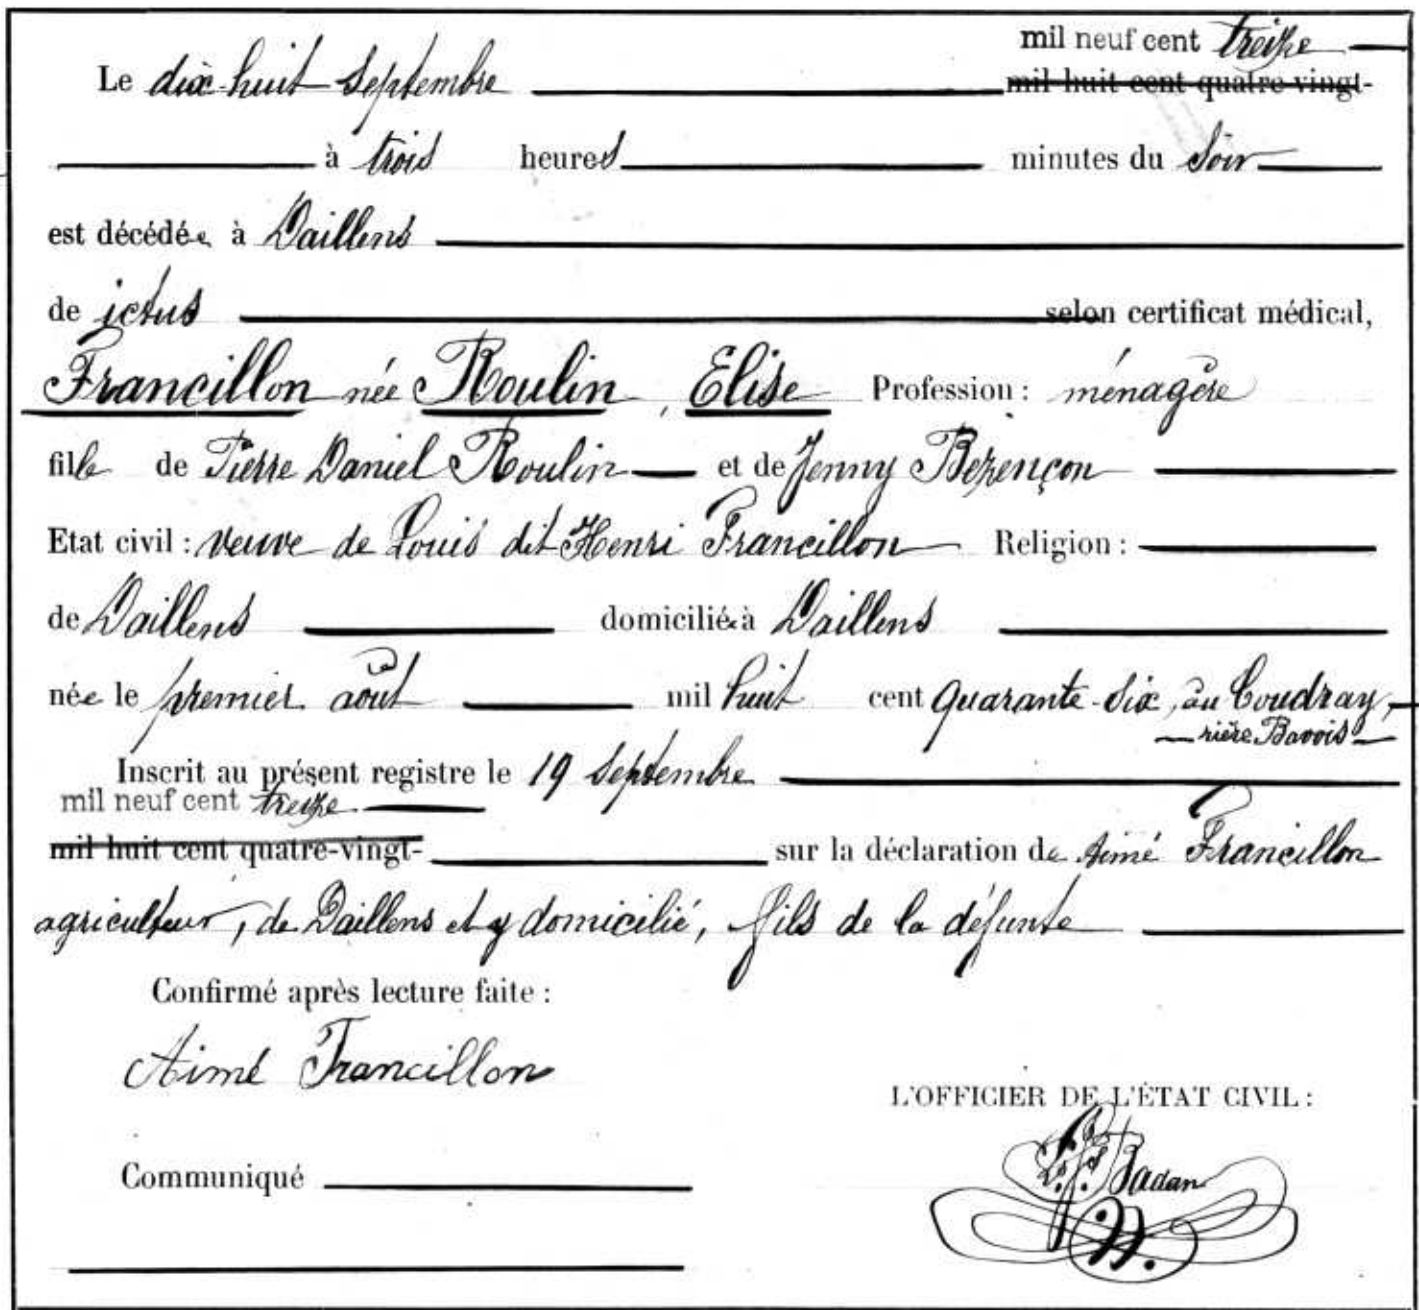 mil neuf cent treize
Le dix-huit Septembre mil huit cent quatre-vingt-
à trois heures minutes du Soir
est décédée à Daillens
de ictus selon certificat médical,
Francillon née Roulin, Elise Profession : ménagère
fille de Pierre Daniel Roulin et de Jenny Bezençon
Etat civil : veuve de Louis dit Henri Francillon Religion :
de Daillens domiciliée à Daillens
née le premier août mil huit cent quarante-six, au Coudray,
rière Bavois
Inscrit au présent registre le 19 Septembre
mil neuf cent treize
mil huit cent quatre-vingt- sur la déclaration de Aimé Francillon
agriculteur, de Daillens et y domicilié, fils de la défunte
Confirmé après lecture faite :
Aimé Francillon
L'OFFICIER DE L'ÉTAT CIVIL :
Badan
Communiqué